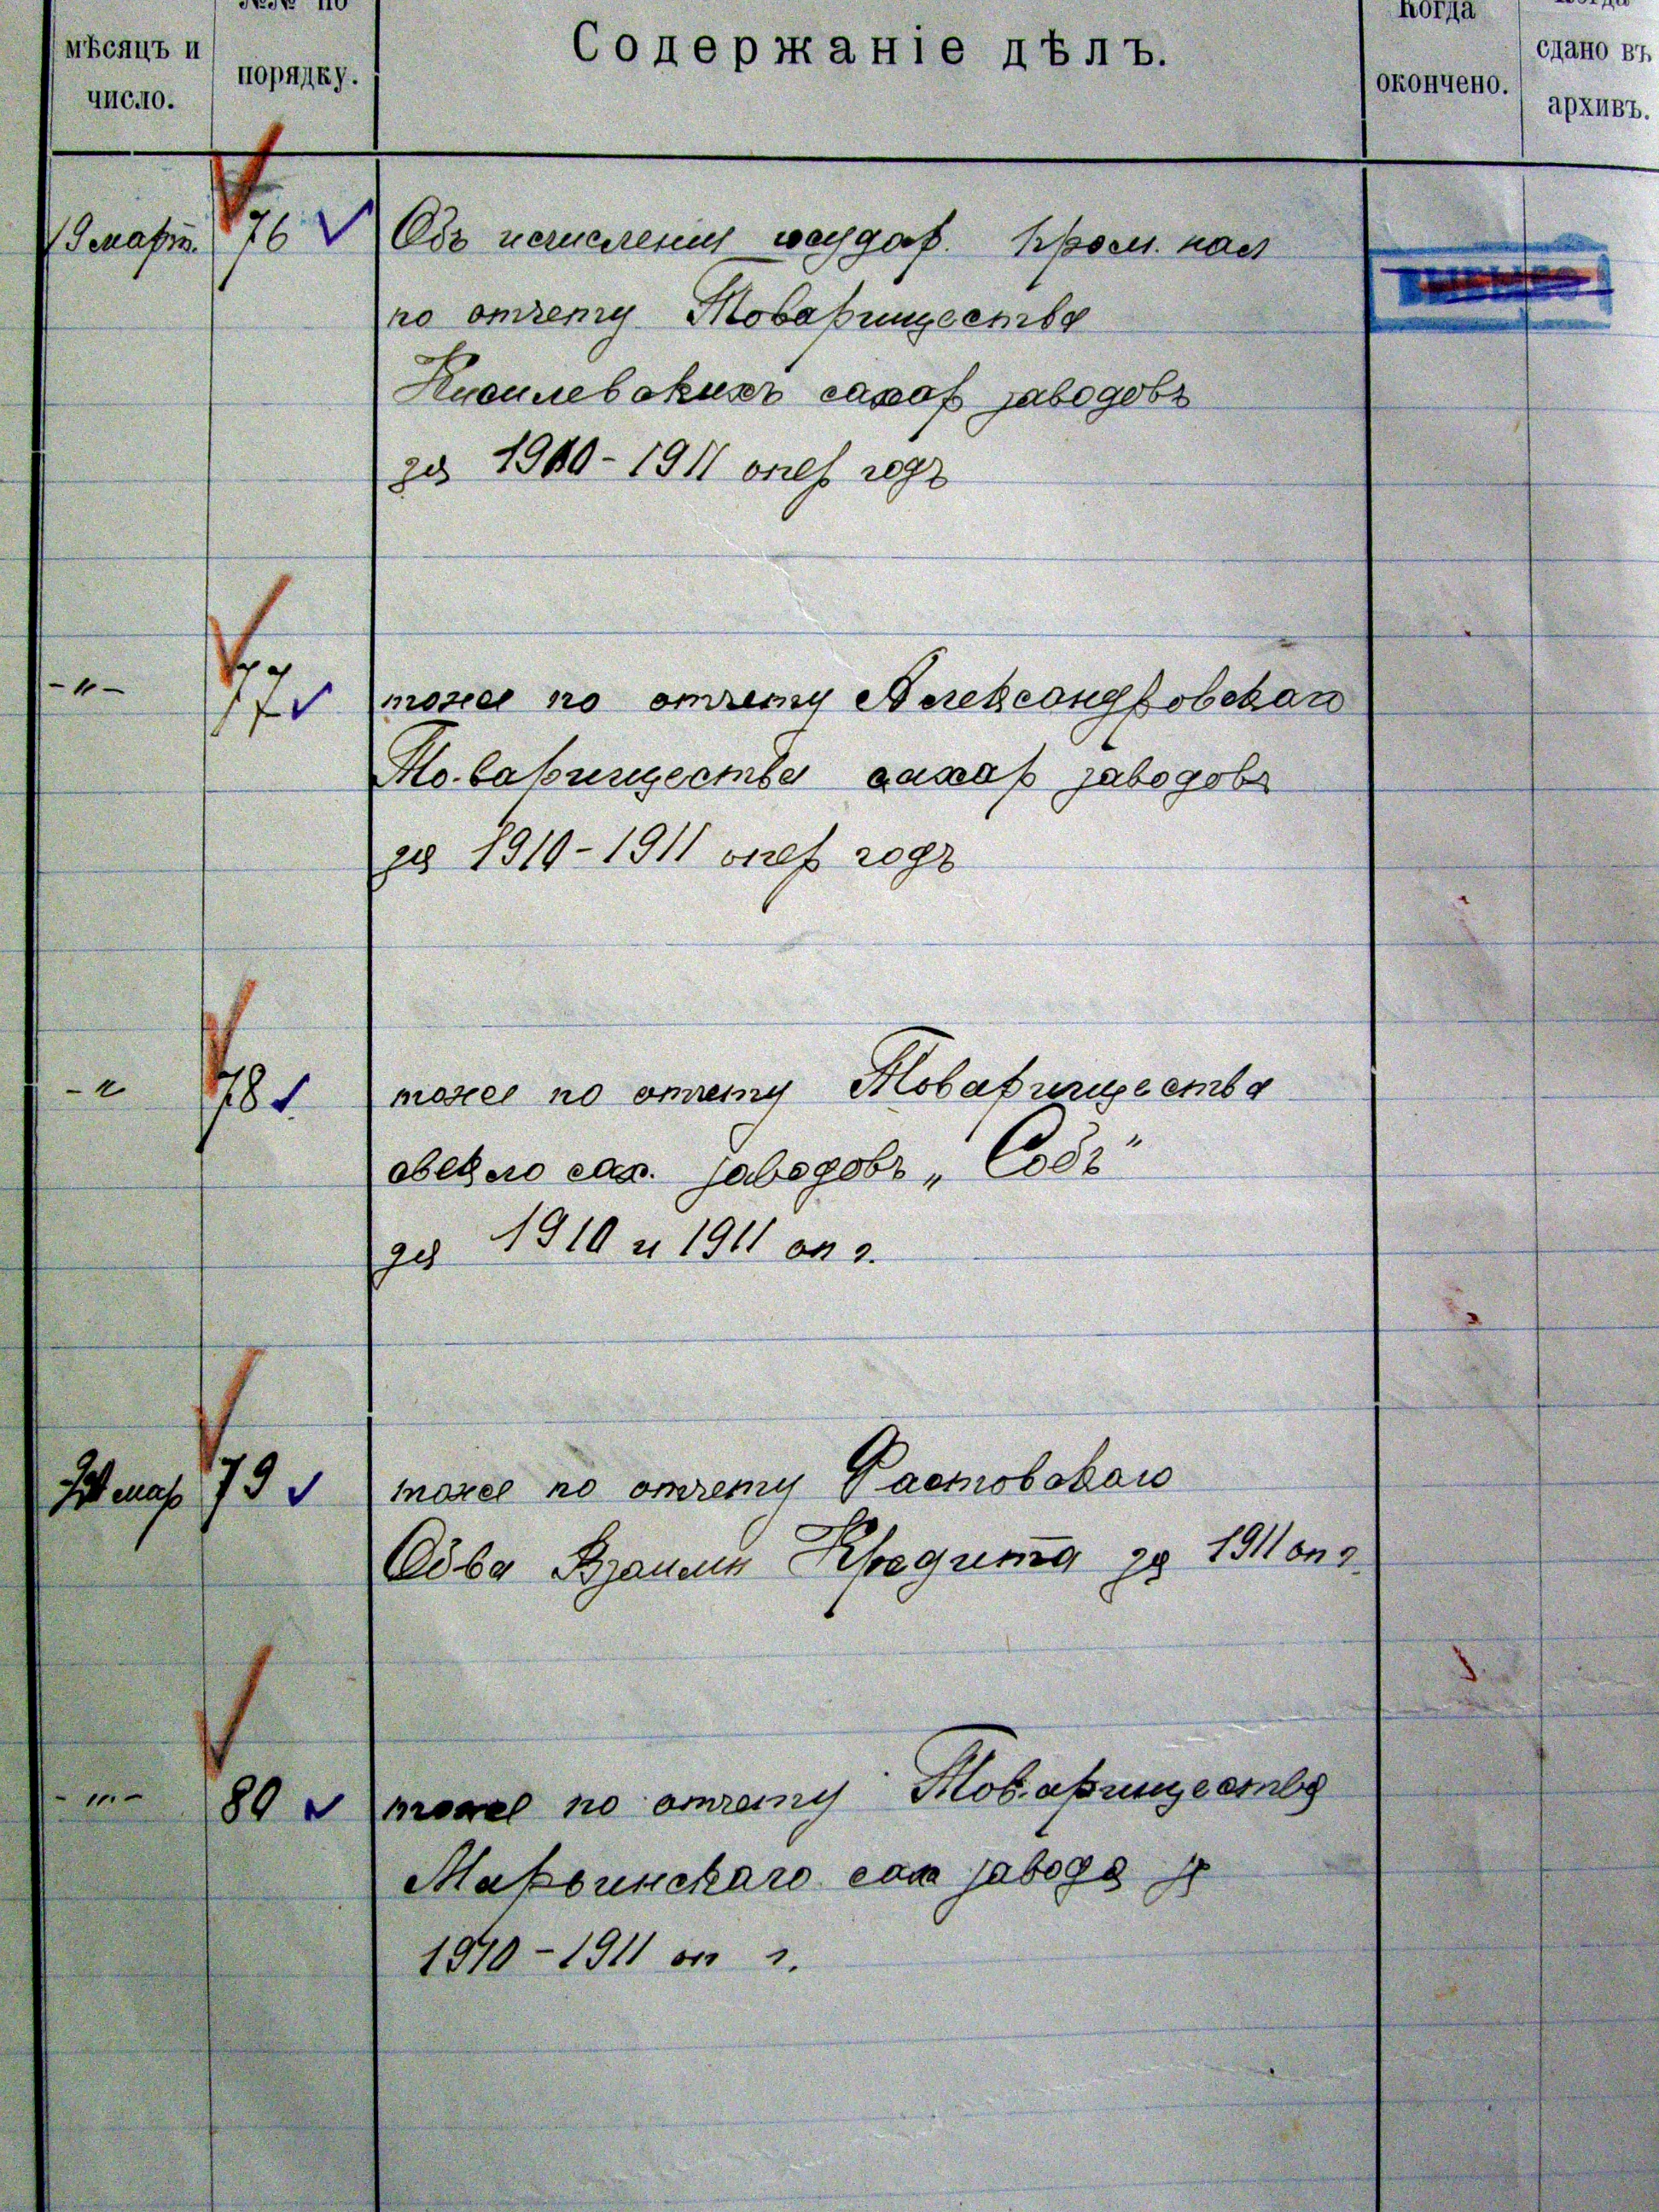 мѣсяцъ и
число.
№№ по
порядку.
Содержаніе дѣлъ.
Когда
окончено.
Когда
сдано въ
архивъ.
19 март. 76 Объ исчислении государ. пром. нал
по отчету Товарищества
Кисилевскихъ сахар заводовъ
за 1910-1911 опер годъ
-"- 77 тоже по отчету Александровскаго
Товарищества сахар заводовъ
за 1910-1911 опер годъ
-"- 78 тоже по отчету Товарищества
свекло сах. заводовъ „Собъ"
за 1910 и 1911 оп г.
мар 79 тоже по отчету Фастовскаго
Об-ва Взаимн Кредита за 1911 оп г.
-"- 80 тоже по отчету Товарищества
Марьинскаго сах завода за
1910-1911 оп г.